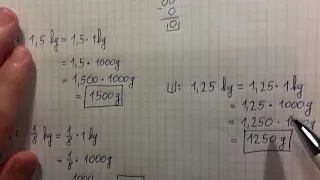 00
0
0
: 1,5 kg = 1,5 · 1 kg
= 1,5 · 1000g
= 1,500 · 1000g
= 1500g
: 1/8 kg = 1/8 · 1 kg
= 1/8 · 1000g
1000
III: 1,25 kg = 1,25 · 1 kg
= 1,25 · 1000g
= 1,250 · 1000g
= 1250g